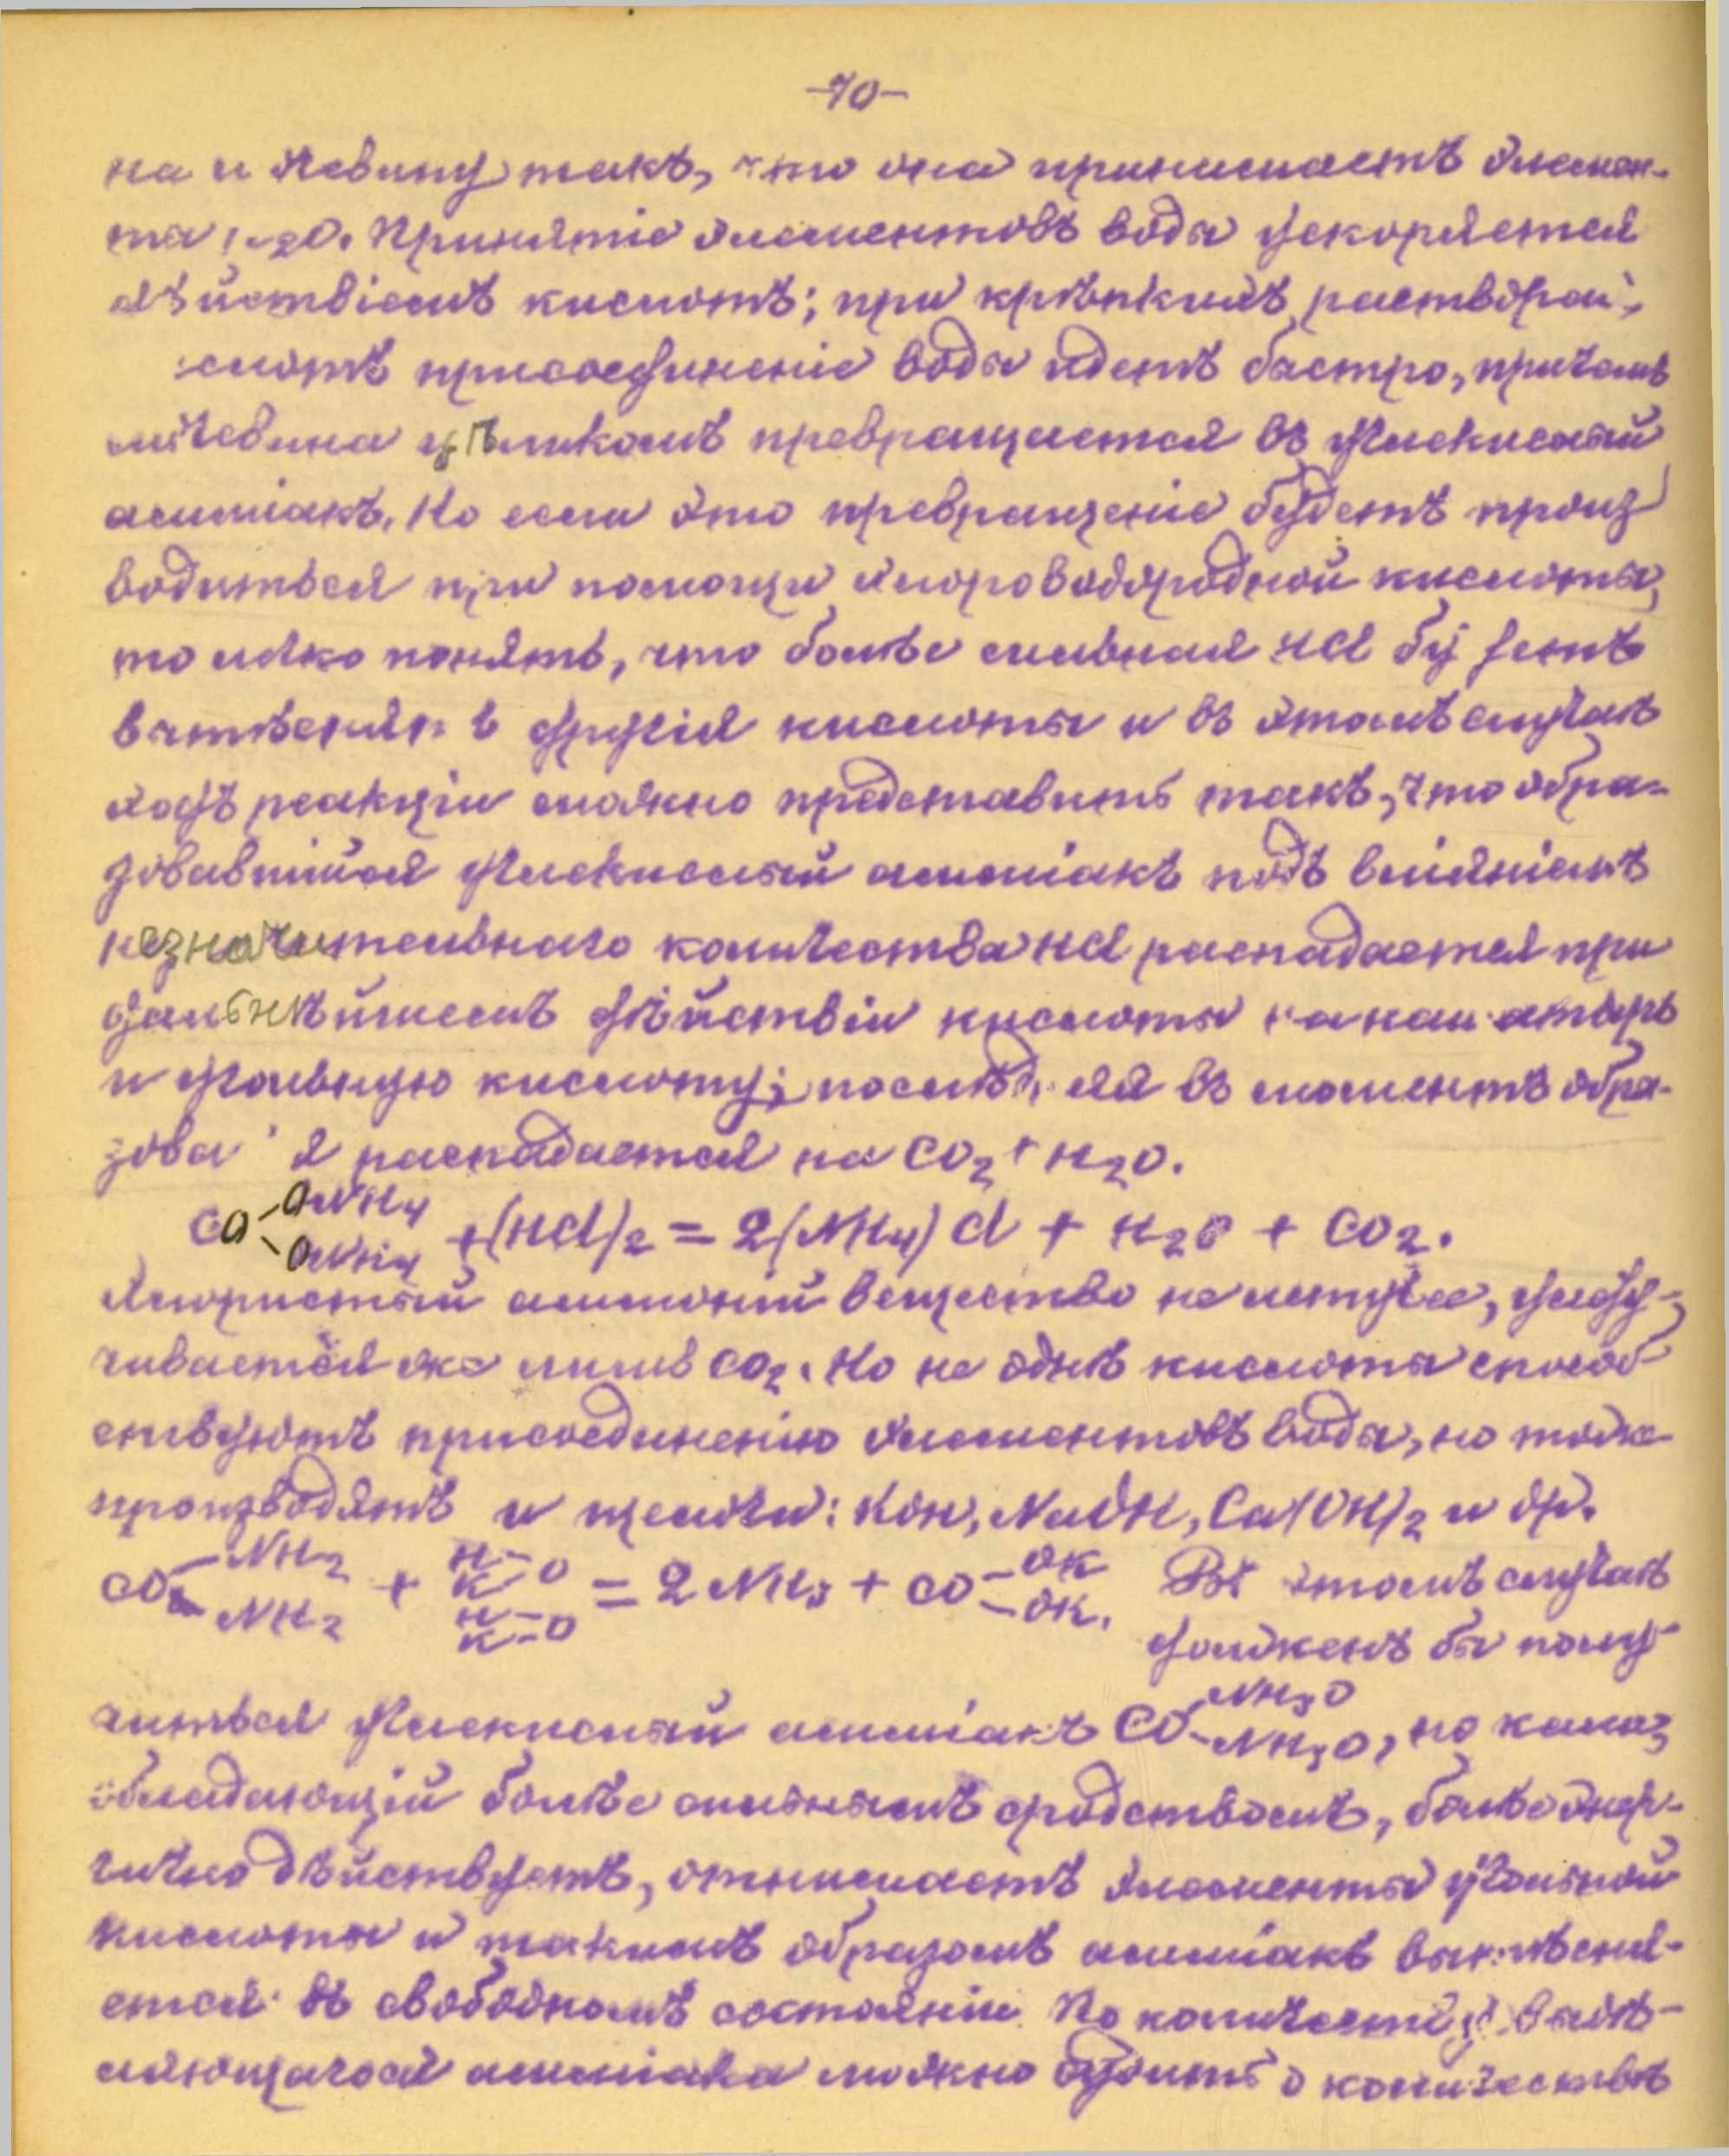 -70-
на и мочевину такъ, что она принимаетъ элемен-
та H2O. Принятіе элементовъ воды ускоряется
дѣйствіемъ кислотъ; при крѣпкихъ раствора
кислотъ присоединеніе воды идетъ быстро, причемъ
мочевина цѣликомъ превращается въ углекислый
амміакъ. Но если это превращеніе будетъ произ
водиться при помощи хлороводородной кислоты,
то легко понять, что болѣе сильная HCl будетъ
вытѣснять другія кислоты и въ этомъ случаѣ
ходъ реакціи можно представить такъ, что обра-
зовавшійся углекислый амміакъ подъ вліяніемъ
незначительнаго количества HCl распадается при
дальнѣйшемъ дѣйствіи кислоты на нашатырь
и угольную кислоту; послѣдняя въ моментъ обра-
зованія распадается на CO2 + H2O.
CO<ONH4 ONH4 + (HCl)2 = 2(NH4)Cl + H2O + CO2.
Хлористый аммоній вещество не летучее, улету-
чивается же лишь CO2. Но не однѣ кислоты способ
ствуютъ присоединенію элементовъ воды, но тоже
производятъ и щелочи: KOH, NaOH, Ca(OH)2 и др.
CO<NH2 NH2 + H K=O H K=O = 2NH3 + CO<OK OK. Въ этомъ случаѣ
долженъ бы полу-
читься углекислый амміакъ CO<NH3O NH3O, но кали,
обладающій болѣе сильнымъ сродствомъ, болѣе энер-
гично дѣйствуетъ, отнимаетъ элементы угольной
кислоты и такимъ образомъ амміакъ вытѣсня-
ется въ свободномъ состояніи. По количеству выдѣ-
ляющагося амміака можно судить о количествѣ